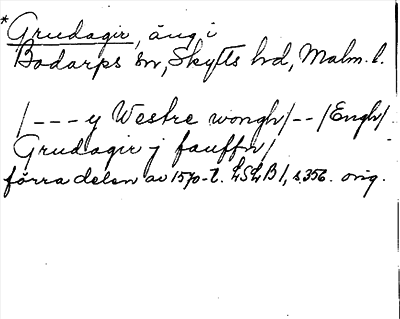 *Grudagir, äng i
Bodarps sn, Skytts hd, Malm. l.
/--- y Westre wongh/--/Engh/.
Grudagir j fauffn/
förra delen av 1570-t. LSLB 1, s. 356. orig.